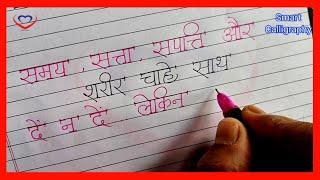 Smart
Calligraphy
समय , सत्ता , संपत्ति और
शरीर चाहे साथ
दें न दें लेकिन